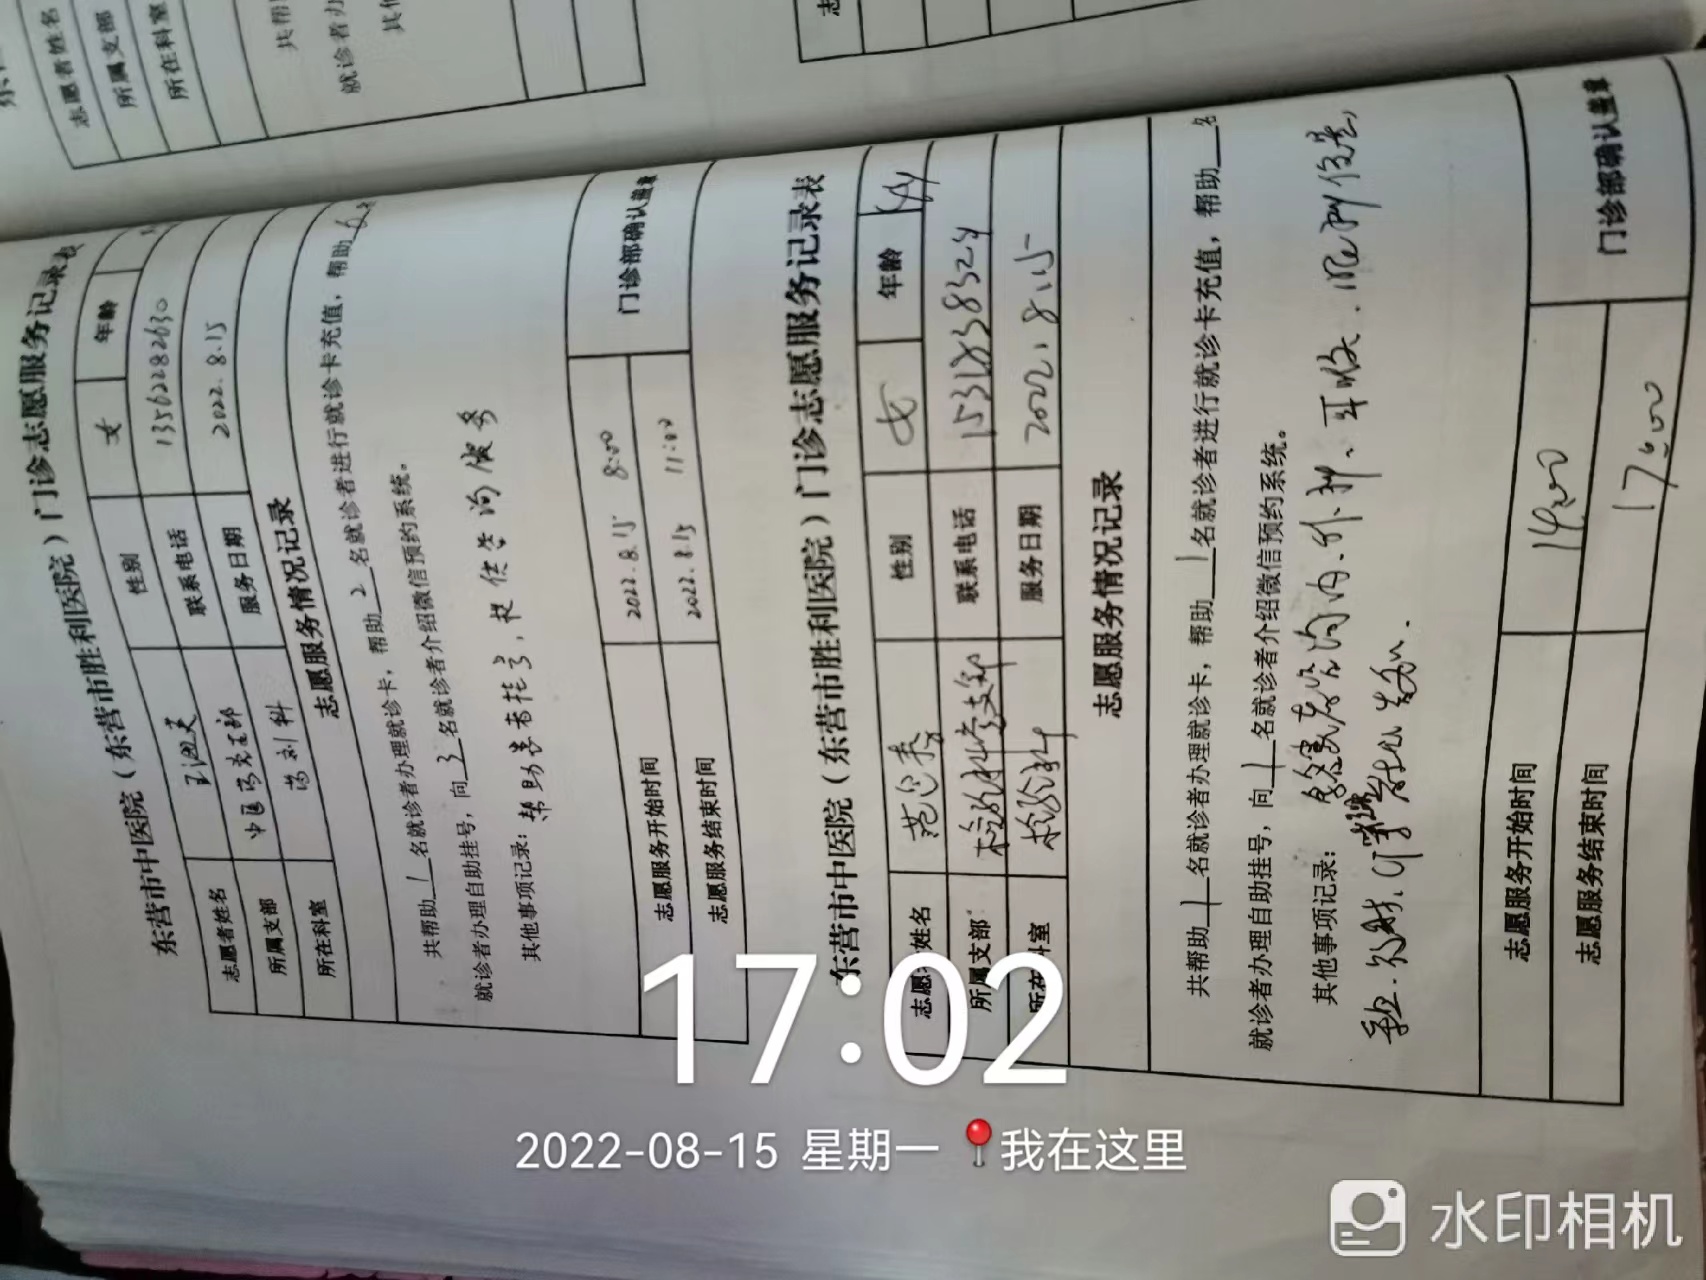 志愿者姓名
所属支部
所在科室
共帮
就诊者办
东营市中医院（东营市胜利医院）门诊志愿服务记录表
志愿者姓名 性别 女 年龄
所属支部 联系电话 13562282630
所在科室 服务日期 2022.8.15
志愿服务情况记录
共帮助1名就诊者办理就诊卡，帮助2名就诊者进行就诊卡充值，帮助6名
就诊者办理自助挂号，向3名就诊者介绍微信预约系统。
其他事项记录：帮助患者挂号，提供咨询服务
志愿服务开始时间 2022.8.15 8:00 门诊部确认盖章
志愿服务结束时间 2022.8.15 11:00
东营市中医院（东营市胜利医院）门诊志愿服务记录表
志愿者姓名 性别 女 年龄
所属支部 检验科党支部 联系电话 15318338324
所在科室 检验科 服务日期 2022.8.15
志愿服务情况记录
共帮助1名就诊者办理就诊卡，帮助1名就诊者进行就诊卡充值，帮助 名
就诊者办理自助挂号，向1名就诊者介绍微信预约系统。
其他事项记录：
志愿服务开始时间 14:00 门诊部确认盖章
志愿服务结束时间 17:00
17:02
2022-08-15 星期一 我在这里
水印相机